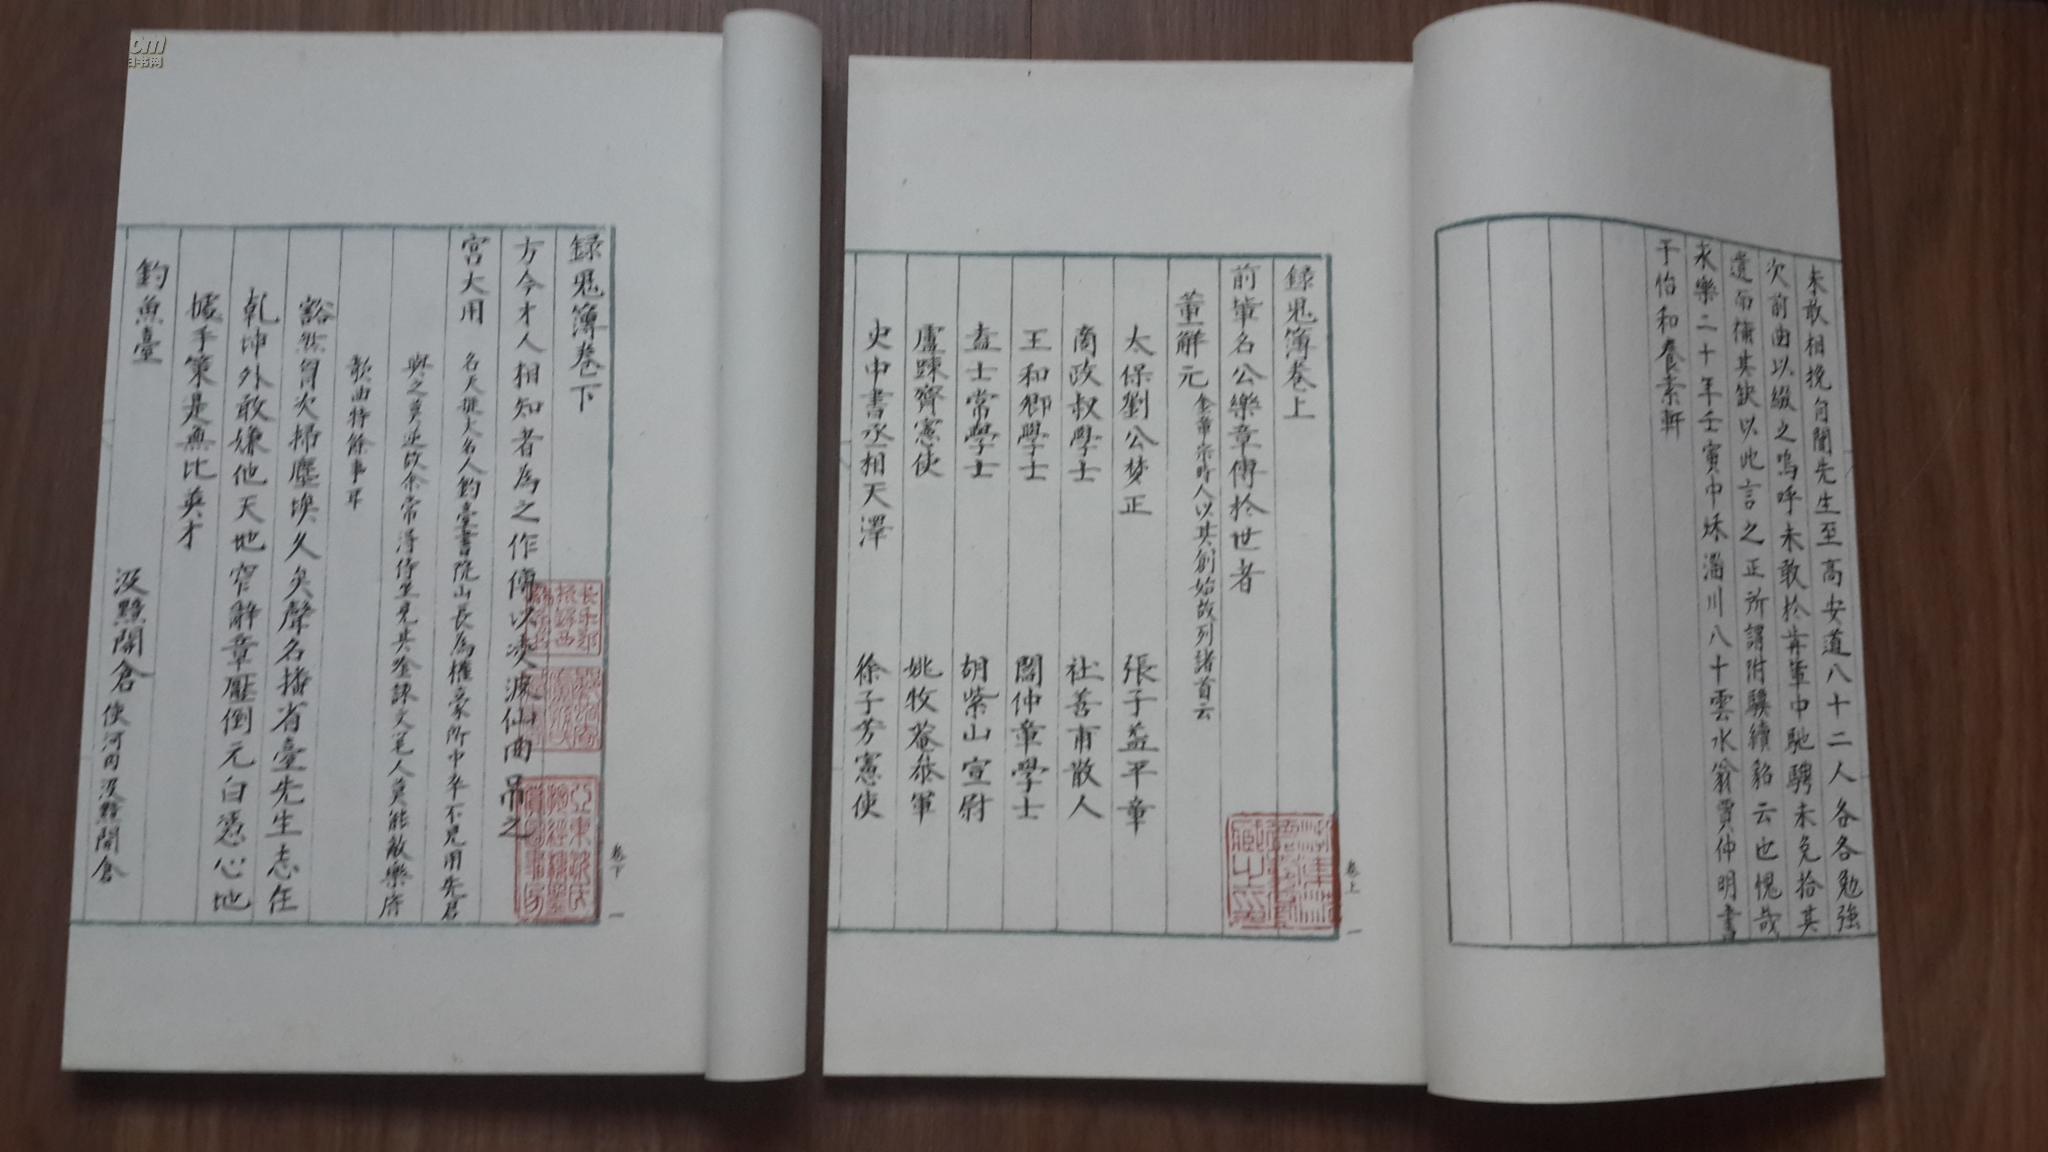 未敢相挽自關先生至高安道八十二人各各勉強
次前曲以綴之嗚呼未敢於前輩中馳騁未免拾其
遺而備其缺以此言之正所謂附驥續貂云也愧哉
永樂二十年壬寅中秋淄川八十雲水翁賈仲明書
于怡和養素軒
錄鬼簿卷上
前輩名公樂章傳於世者
董解元 金章宗時人以其創始故列諸首云
太保劉公夢正 張子益平章
商政叔學士 杜善甫散人
王和卿學士 閻仲章學士
盍士常學士 胡紫山宣慰
盧踈齋憲使 姚牧菴叅軍
史中書丞相天澤 徐子芳憲使
卷上 一
錄鬼簿卷下
方今才人相知者為之作傳以凌波仙曲弔之
宮大用 名天挺大名人釣臺書院山長為權豪所中卒不見用先君
與之莫逆故余常得侍坐見其吟詠文笔人莫能敵樂府
歌曲特餘事耳
豁然胷次掃塵埃久矣聲名播省臺先生志在
乾坤外敢嫌他天地窄辭章壓倒元白憑心地
據手策是無比英才
釣魚臺 汲黯開倉 使河内汲黯開倉
卷下 一
旧书网